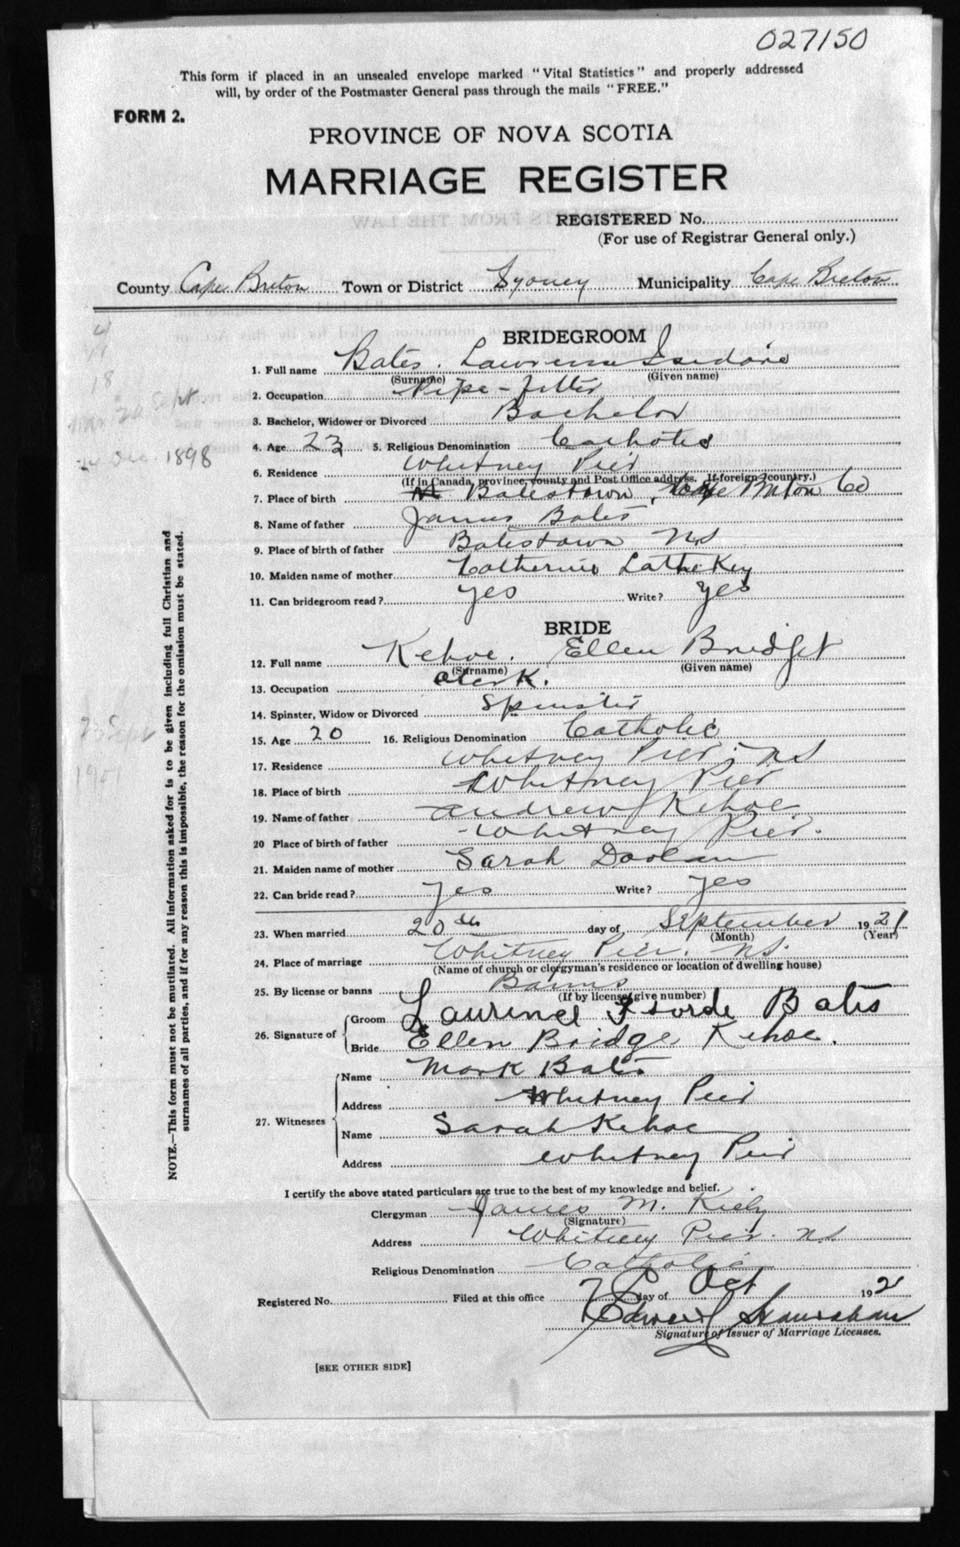 027150
This form if placed in an unsealed envelope marked "Vital Statistics" and properly addressed
will, by order of the Postmaster General pass through the mails "FREE."
FORM 2.
PROVINCE OF NOVA SCOTIA
MARRIAGE REGISTER
REGISTERED No.
(For use of Registrar General only.)
County Cape Breton Town or District Sydney Municipality Cape Breton
BRIDEGROOM
1. Full name Bates. Lawrence Isadore
(Surname) (Given name)
2. Occupation Pipe-fitter
3. Bachelor, Widower or Divorced Bachelor
4. Age 23 5. Religious Denomination Catholic
6. Residence Whitney Pier
(If in Canada, province, county and Post Office address. If foreign country.)
7. Place of birth Batestown, Cape Breton Co
8. Name of father James Bates
9. Place of birth of father Batestown NS
10. Maiden name of mother Catherine
11. Can bridegroom read? yes Write? yes
BRIDE
12. Full name Kehoe. Ellen Bridget
(Surname) (Given name)
13. Occupation clerk.
14. Spinster, Widow or Divorced Spinster
15. Age 20 16. Religious Denomination Catholic
17. Residence Whitney Pier, NS
18. Place of birth Whitney Pier
19. Name of father Andrew Kehoe
20 Place of birth of father Whitney Pier.
21. Maiden name of mother Sarah Doolan
22. Can bride read? yes Write? yes
23. When married 20th day of September 1921
(Month) (Year)
24. Place of marriage Whitney Pier. NS.
(Name of church or clergyman's residence or location of dwelling house)
25. By license or banns Banns
(If by license give number)
26. Signature of Groom Laurence Bates
Bride Ellen Bridge Kehoe.
27. Witnesses
Name Mark Bates
Address Whitney Pier
Name Sarah Kehoe
Address Whitney Pier
I certify the above stated particulars are true to the best of my knowledge and belief.
Clergyman James M. Kiely
(Signature)
Address Whitney Pier. NS
Religious Denomination Catholic
Registered No. Filed at this office day of Oct 192
Signature of Issuer of Marriage Licenses.
[SEE OTHER SIDE]
NOTE.—This form must not be mutilated. All information asked for is to be given including full Christian and
surnames of all parties, and if for any reason this is impossible, the reason for the omission must be stated.
18
20 Sept
Dec. 1898
20 Sept
1901